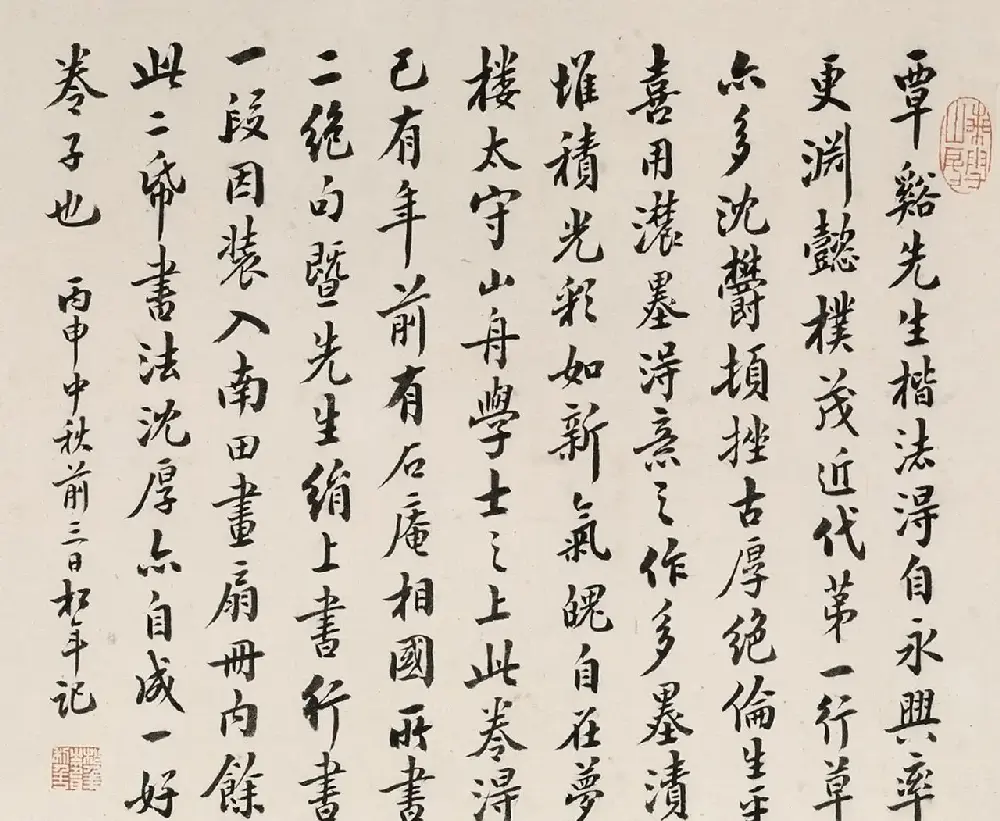 覃谿先生楷法得自永興率
更淵懿樸茂近代第一行草
亦多沈欝頓挫古厚絶倫生平
喜用濃墨得意之作多墨漬
堆積光彩如新氣魄自在夢
楼太守山舟學士之上此卷得
已有年前有石庵相國所書
二絶句暨先生絹上書行書
一段因装入南田畫扇冊内餘
此二帋書法沈厚亦自成一好
卷子也
丙申中秋前三日松年記